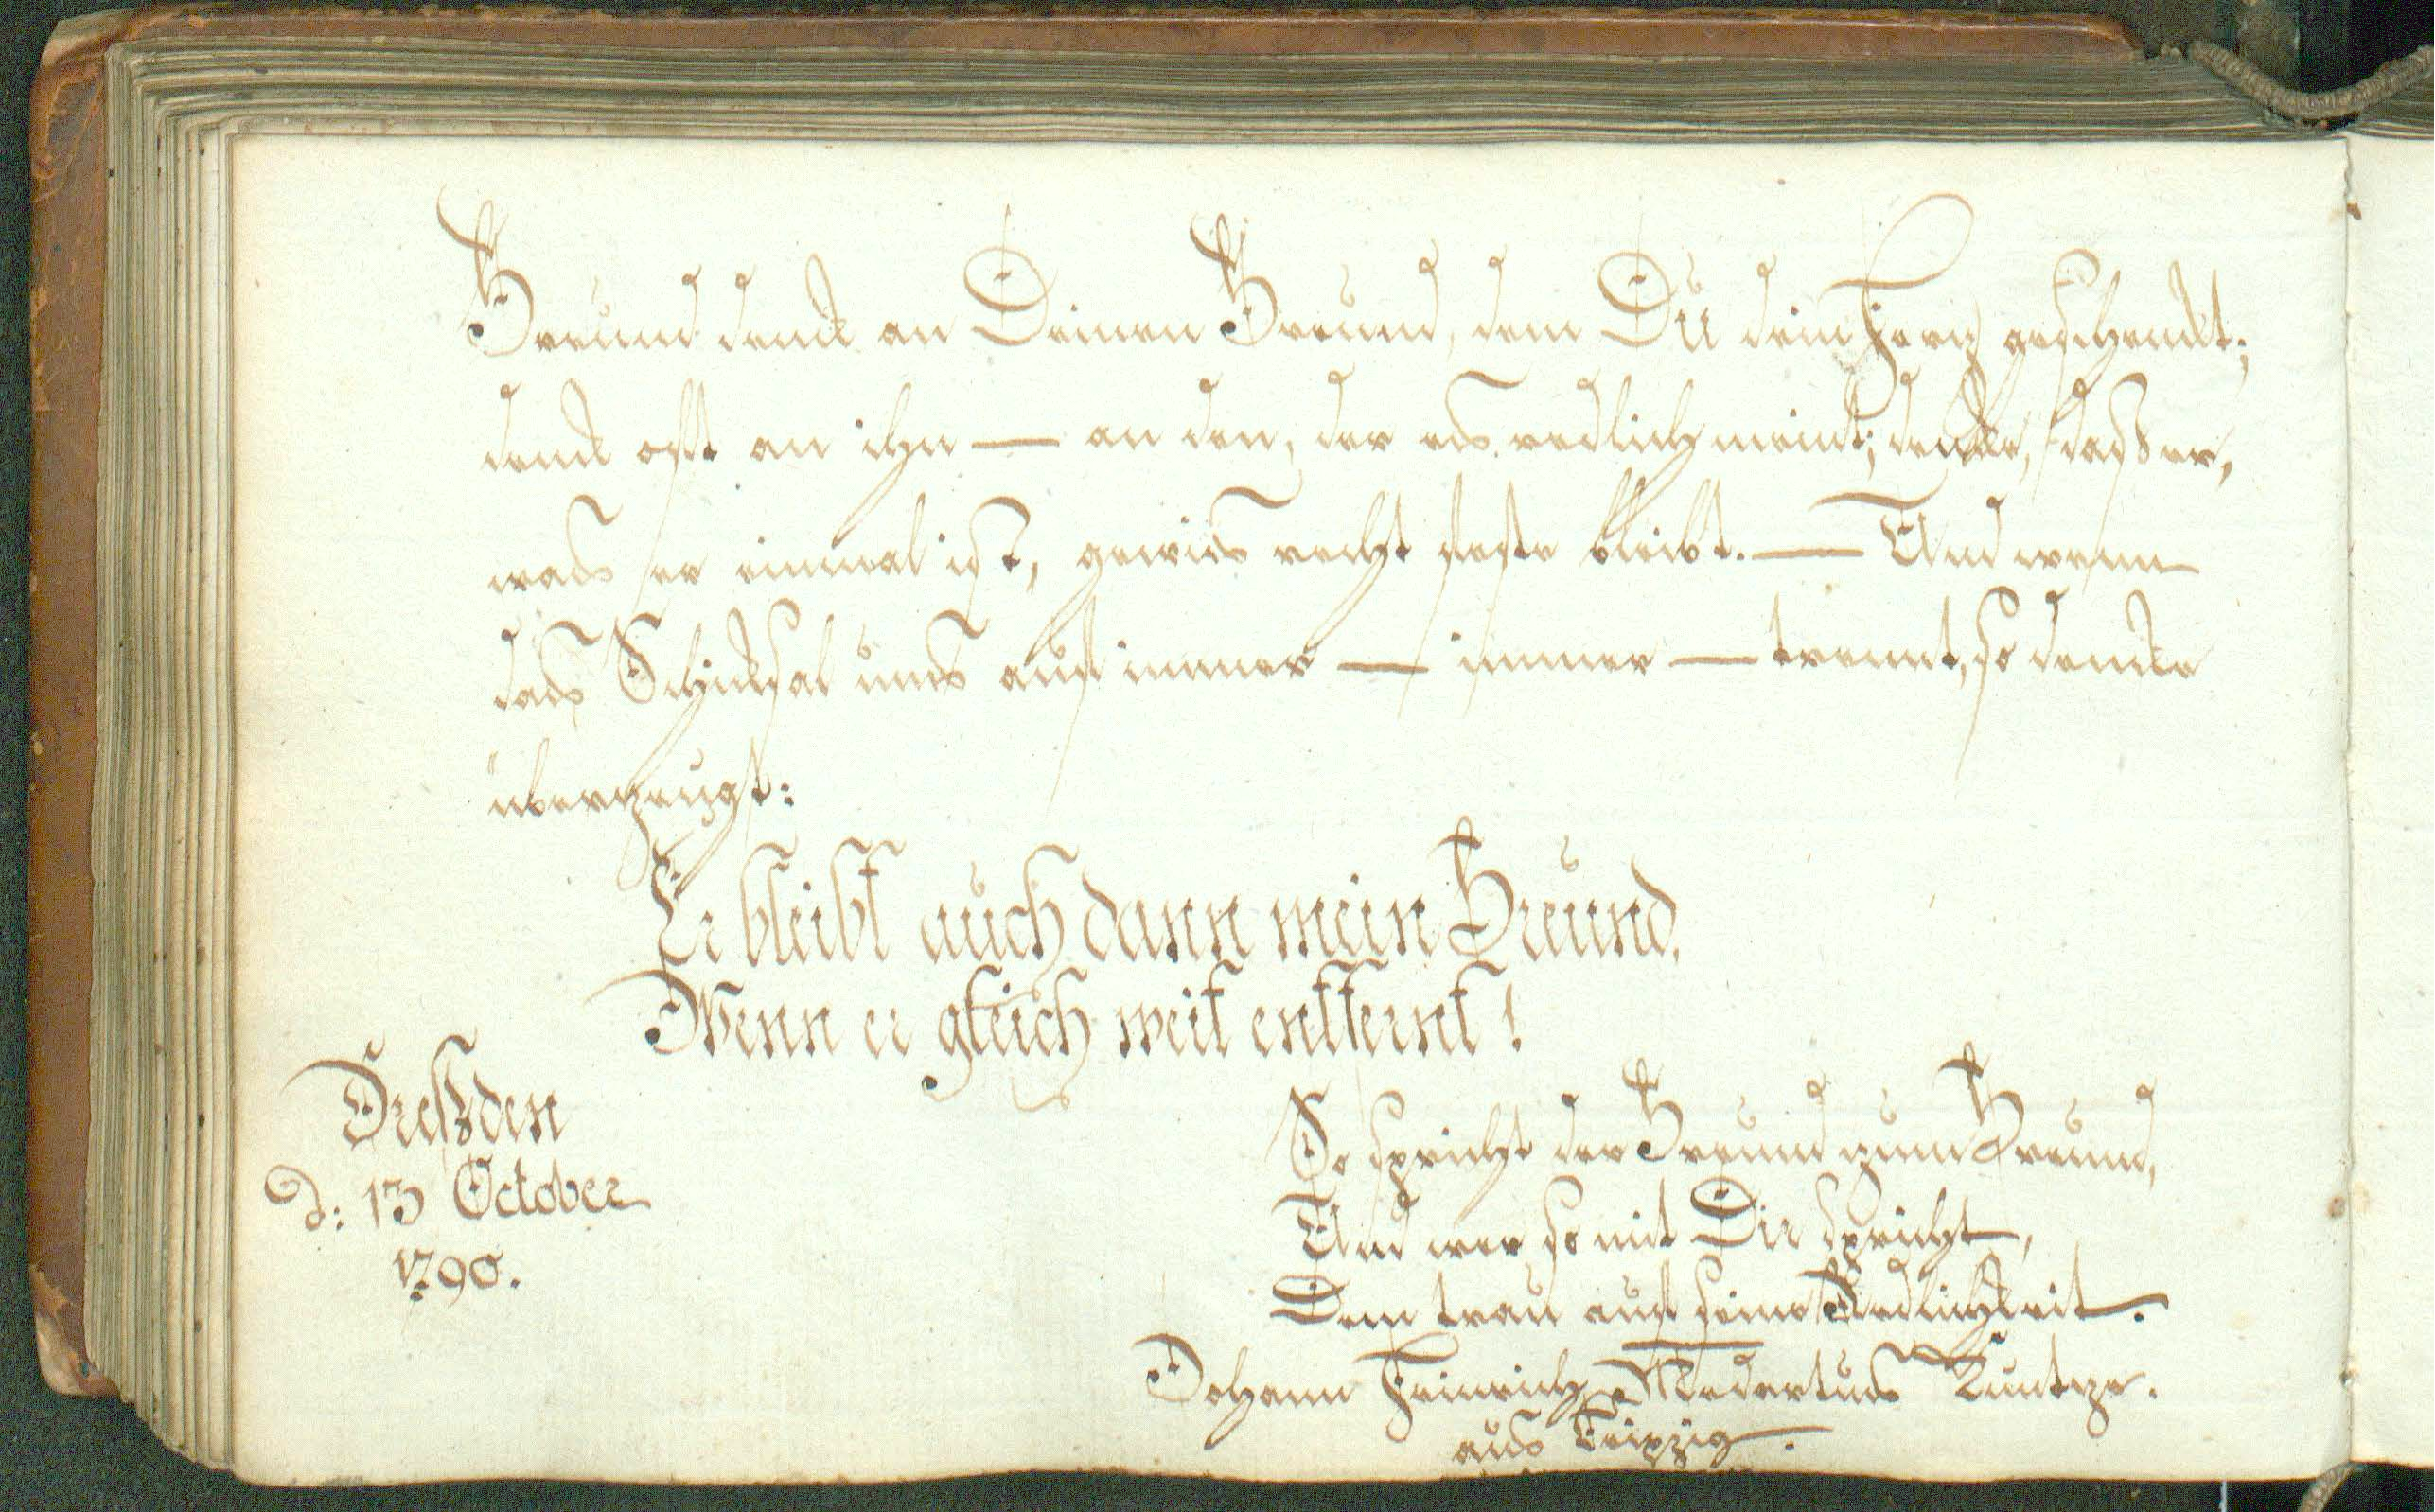 Freund denck an Deinen Freund, dem Du dein Herz geschenckt;
denck oft an ihn — an den, der es redlich meint; dencke, daß er,
was er einmal ist, gewis recht feste bleibt. — Und wenn
das Schicksal uns auf immer — immer — trennt, so dencke
überzeugt:
Er bleibt auch dann mein Freund,
Wenn er gleich weit entfernt!
Dreßden
d: 13 October
1790.
So spricht der Freund zum Freund,
Und wer so mit Dir spricht,
Dem trau auf seine Redlichkeit.
Johann Heinrich Medertus Kuntze.
aus Leipzig.